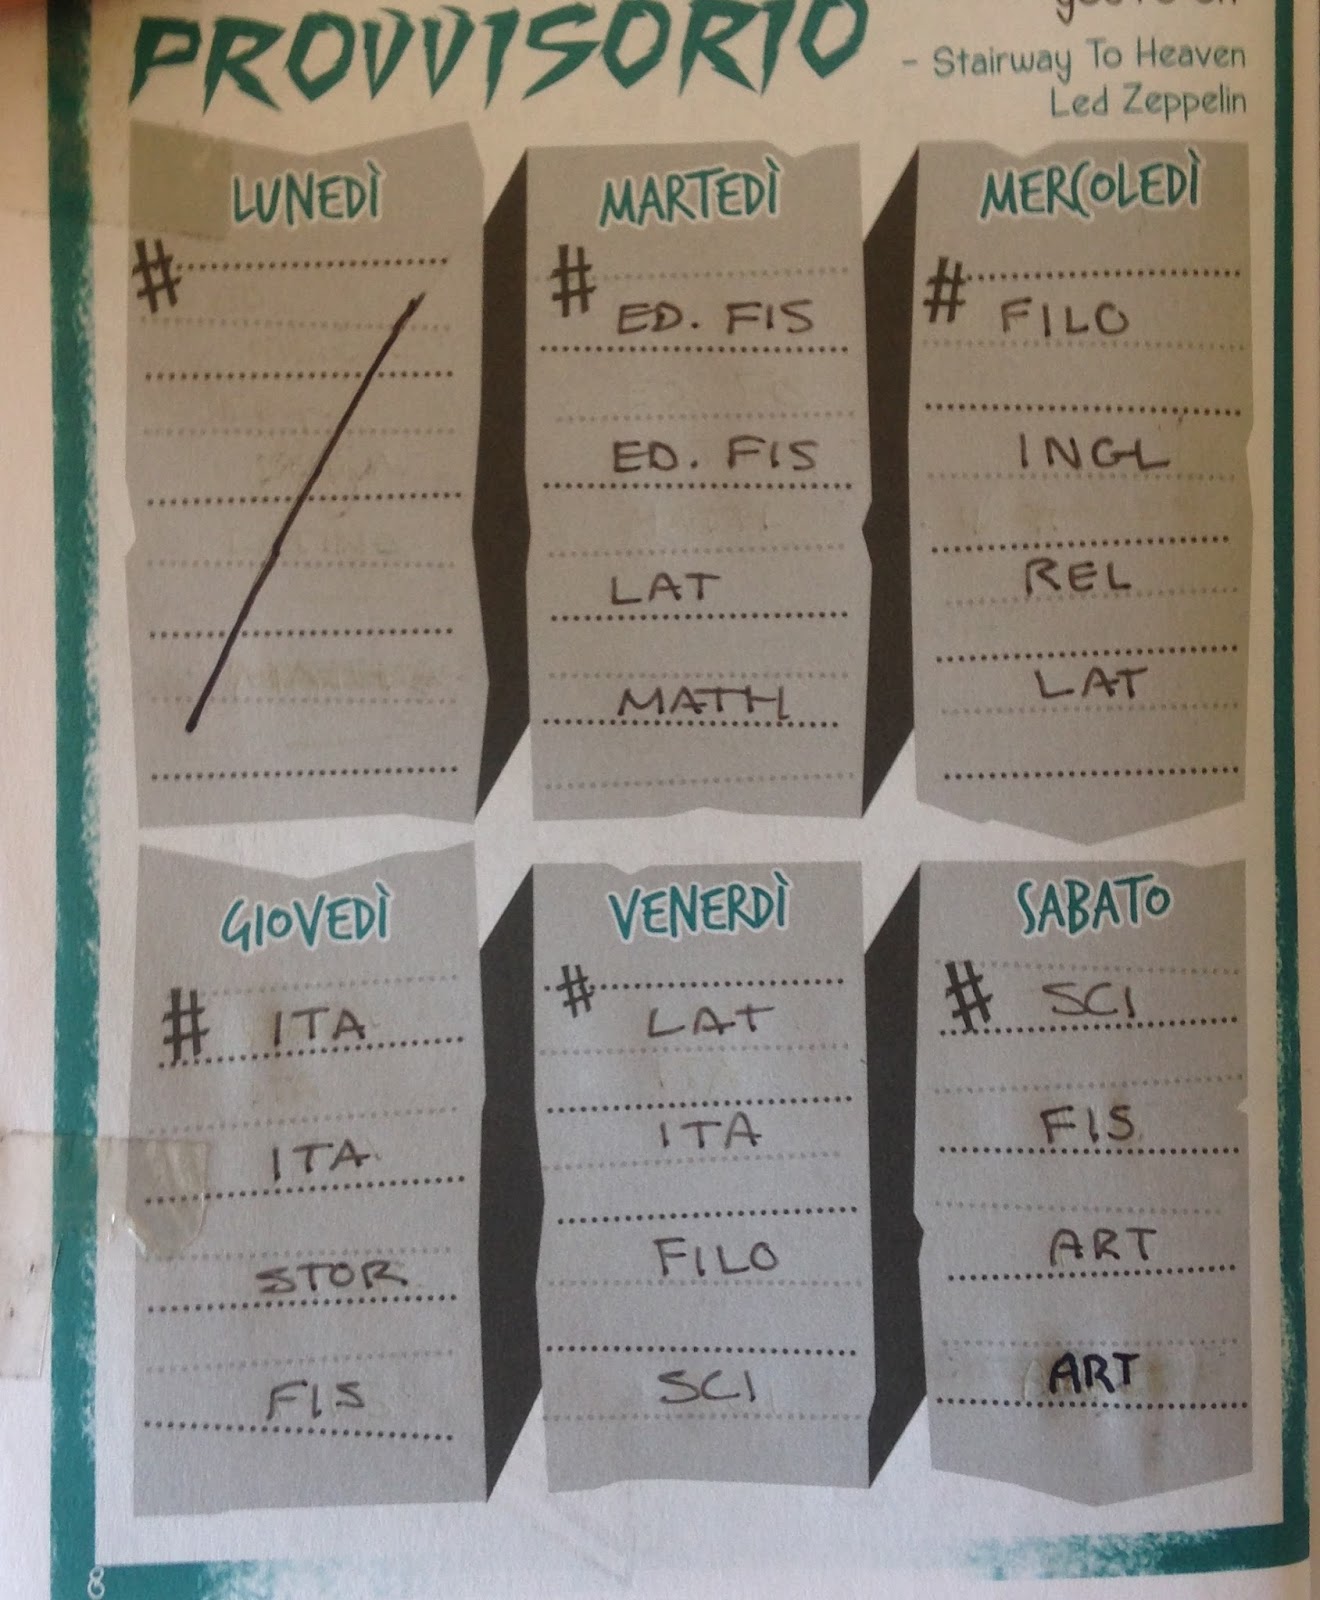 PROVVISORIO
- Stairway To Heaven
Led Zeppelin
LUNEDÌ
#
MARTEDÌ
#
ED. FIS
ED. FIS
LAT
MATH
MERCOLEDÌ
# FILO
INGL
REL
LAT
GIOVEDÌ
# ITA
ITA
STOR
FIS
VENERDÌ
# LAT
ITA
FILO
SCI
SABATO
# SCI
FIS
ART
ART
8